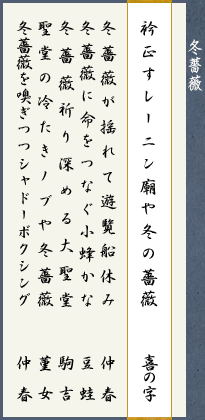 冬薔薇
衿正すレーニン廟や冬の薔薇 喜の字
冬薔薇が揺れて遊覧船休み 仲春
冬薔薇に命をつなぐ小蜂かな 豆蛙
冬薔薇祈り深める大聖堂 駒吉
聖堂の冷たきノブや冬薔薇 菫女
冬薔薇を嗅ぎつつシャドーボクシング 仲春